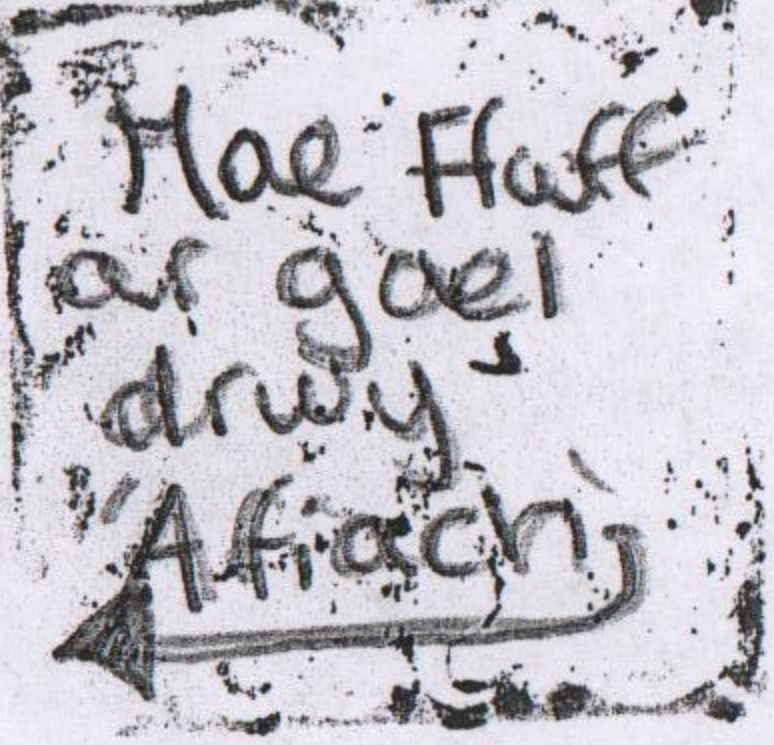 Mae Ffwff
ar gael
drwy
'Afiach'